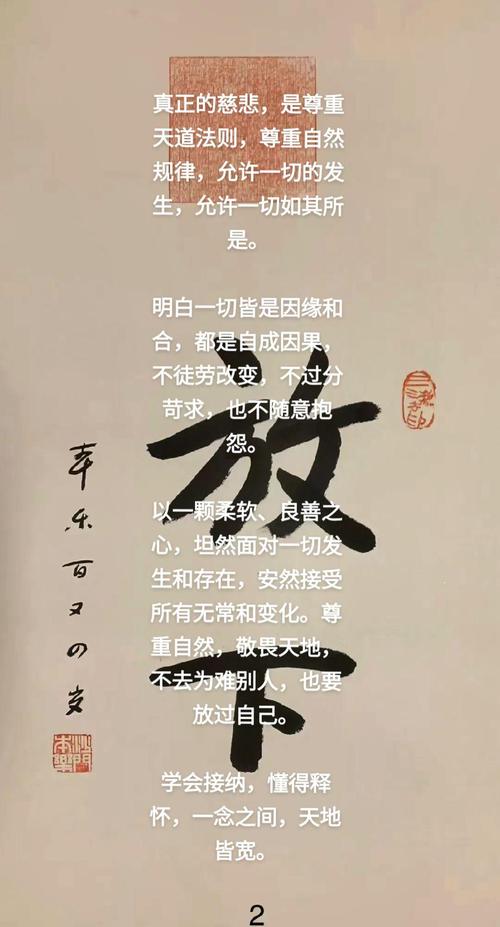 真正的慈悲，是尊重
天道法则，尊重自然
规律，允许一切的发
生，允许一切如其所
是。
明白一切皆是因缘和
合，都是自成因果，
不徒劳改变，不过分
苛求，也不随意抱
怨。
以一颗柔软、良善之
心，坦然面对一切发
生和存在，安然接受
所有无常和变化。尊
重自然，敬畏天地，
不去为难别人，也要
放过自己。
学会接纳，懂得释
怀，一念之间，天地
皆宽。
放下
本乐百又四岁
2